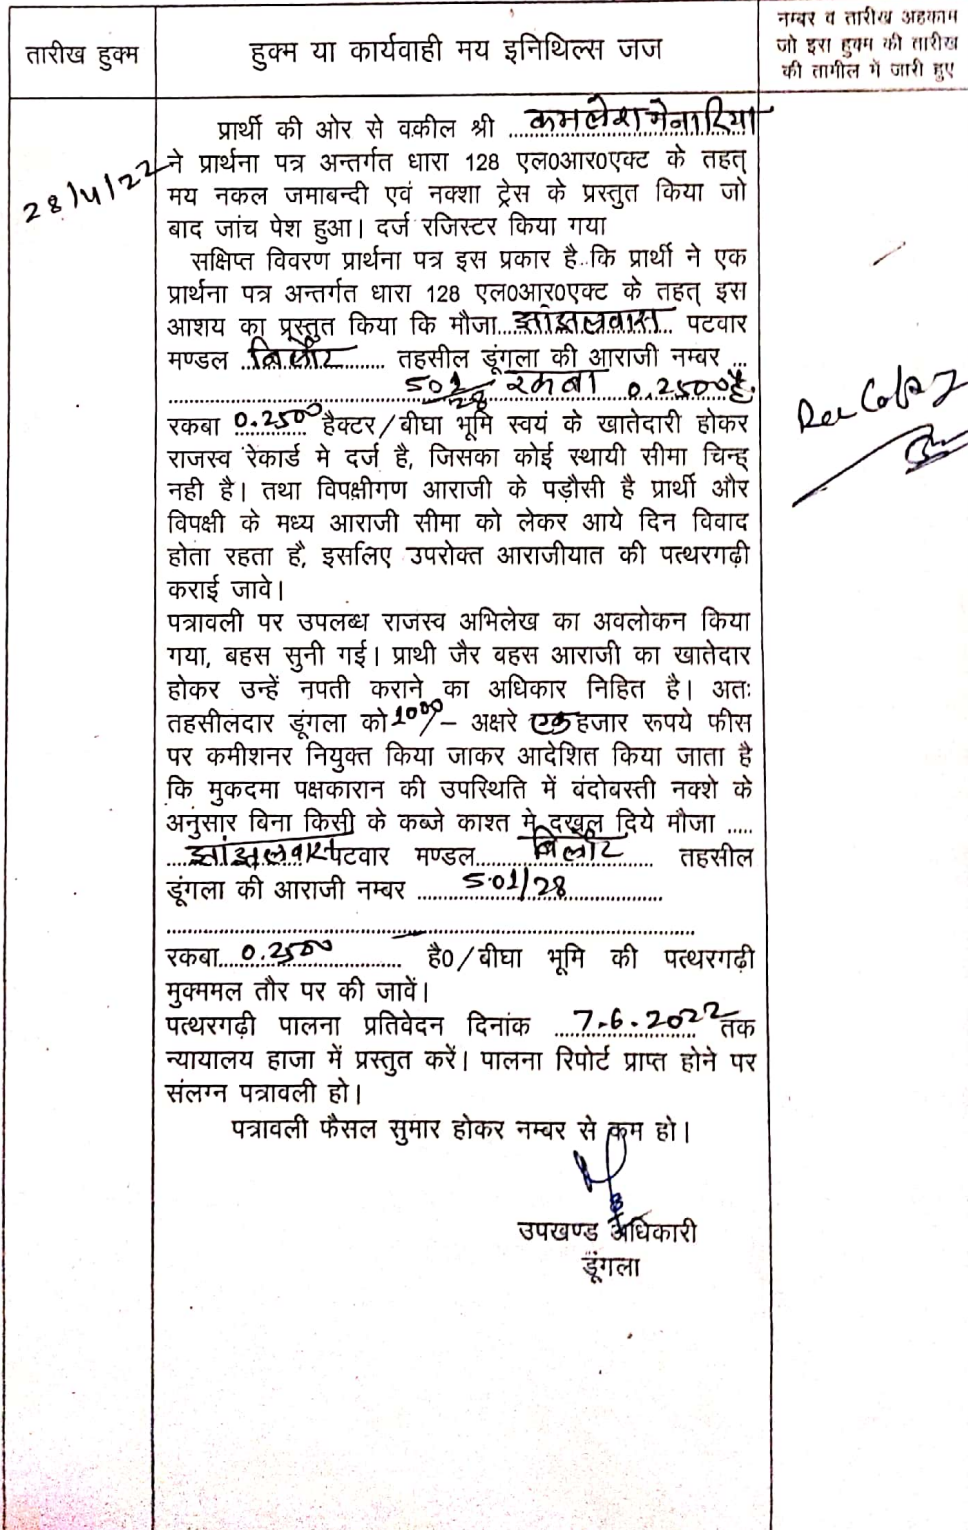 तारीख हुक्म
हुक्म या कार्यवाही मय इनिथिल्स जज
नम्बर व तारीख अहकाम
जो इस हुक्म की तारीख
की तामील में जारी हुए
28/4/22
प्रार्थी की ओर से वकील श्री ..कमलेश मेनारिया
ने प्रार्थना पत्र अन्तर्गत धारा 128 एल0आर0एक्ट के तहत्
मय नकल जमाबन्दी एवं नक्शा ट्रेस के प्रस्तुत किया जो
बाद जांच पेश हुआ। दर्ज रजिस्टर किया गया
सक्षिप्त विवरण प्रार्थना पत्र इस प्रकार है कि प्रार्थी ने एक
प्रार्थना पत्र अन्तर्गत धारा 128 एल0आर0एक्ट के तहत् इस
आशय का प्रस्तुत किया कि मौजा...झांझलवास.. पटवार
मण्डल ..बिलोट....... तहसील डूंगला की आराजी नम्बर ...
501/28 रकबा 0.2500 है.
रकबा 0.2500 हैक्टर/बीघा भूमि स्वयं के खातेदारी होकर
राजस्व रेकार्ड मे दर्ज है, जिसका कोई स्थायी सीमा चिन्ह्
नही है। तथा विपक्षीगण आराजी के पड़ौसी है प्रार्थी और
विपक्षी के मध्य आराजी सीमा को लेकर आये दिन विवाद
होता रहता है, इसलिए उपरोक्त आराजीयात की पत्थरगढ़ी
कराई जावे।
पत्रावली पर उपलब्ध राजस्व अभिलेख का अवलोकन किया
गया, बहस सुनी गई। प्राथी जैर वहस आराजी का खातेदार
होकर उन्हें नपती कराने का अधिकार निहित है। अतः
तहसीलदार डूंगला को 1000/- अक्षरे एक हजार रूपये फीस
पर कमीशनर नियुक्त किया जाकर आदेशित किया जाता है
कि मुकदमा पक्षकारान की उपस्थिति में बंदोबस्ती नक्शे के
अनुसार बिना किसी के कब्जे काश्त मे दखल दिये मौजा .....
..झांझलवास पटवार मण्डल.....बिलोट..... तहसील
डूंगला की आराजी नम्बर .....501/28..........
रकबा...0.2500......... है0/बीघा भूमि की पत्थरगढ़ी
मुक्ममल तौर पर की जावें।
पत्थरगढ़ी पालना प्रतिवेदन दिनांक ...7-6-2022 तक
न्यायालय हाजा में प्रस्तुत करें। पालना रिपोर्ट प्राप्त होने पर
संलग्न पत्रावली हो।
पत्रावली फैसल सुमार होकर नम्बर से कम हो।
उपखण्ड अधिकारी
डूंगला
Rec Copy